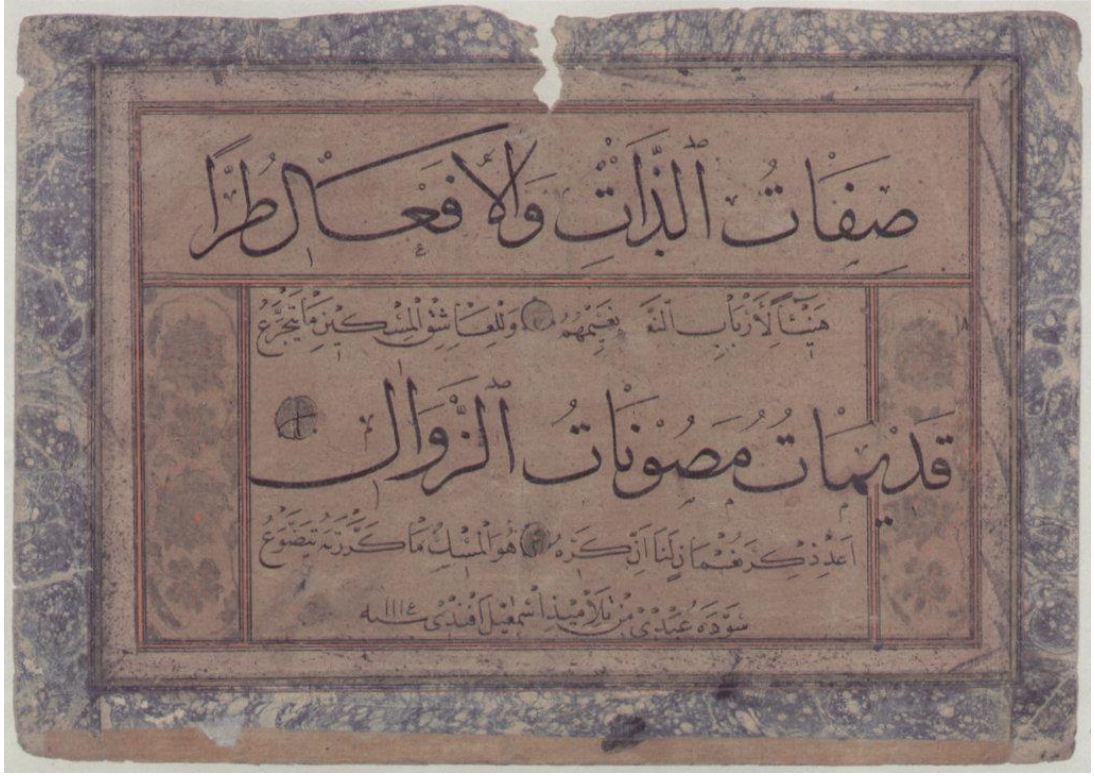 صِفَاتُ الذَّاتِ وَالأَفْعَالِ طُرًّا
هَنِيئًا لِأَرْبَابِ النَّعِيمِ نَعِيمُهُمْ وَلِلْعَاشِقِ الْمِسْكِينِ مَا يَتَجَرَّعُ
قَدِيمَاتٌ مَصُونَاتُ الزَّوَالِ
اَعِدْ ذِكْرَ نُعْمَانٍ لَنَا اِنَّ ذِكْرَهُ هُوَ الْمِسْكُ مَا كَرَّرْتَهُ يَتَضَوَّعُ
سَوَّدَهُ عَبْدِى مِنْ تَلَامِيذِ اسْمٰعِيل اَفَنْدِى سنه ١١١٤